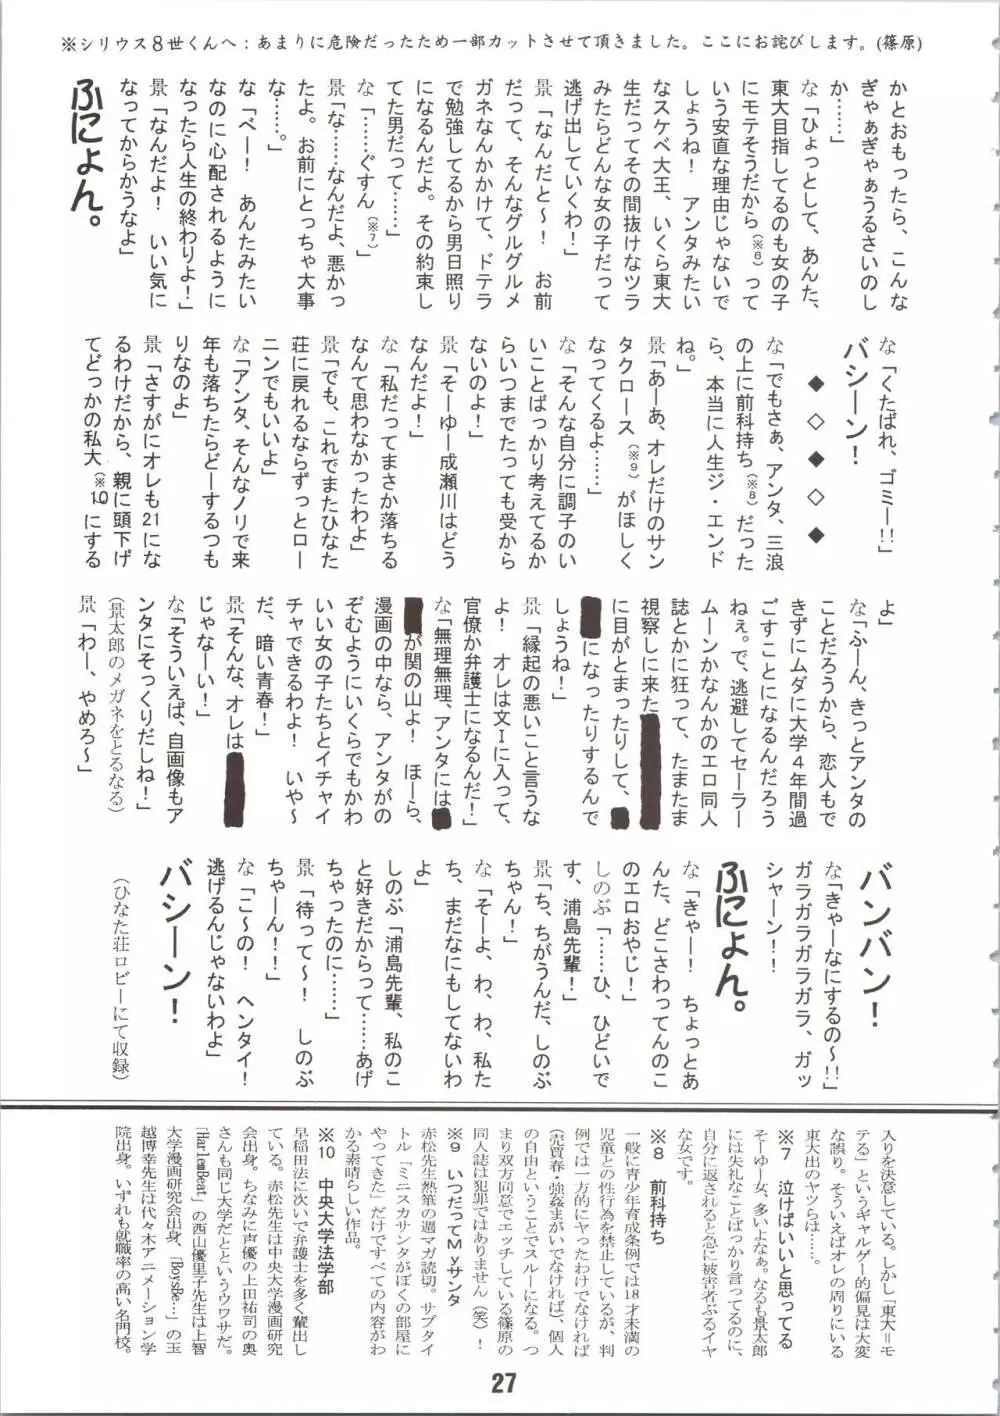 ※シリウス8世くんへ：あまりに危険だったため一部カットさせて頂きました。ここにお詫びします。(篠原)
かとおもったら、こんな
ぎゃぁぎゃぁうるさいのし
か……」
な「ひょっとして、あんた、
東大目指してるのも女の子
にモテそうだから(※6)って
いう安直な理由じゃないで
しょうね！　アンタみたい
なスケベ大王、いくら東大
生だってその間抜けなツラ
みたらどんな女の子だって
逃げ出していくわ！」
景「なんだと～！　お前
だって、そんなグルグルメ
ガネなんかかけて、ドテラ
で勉強してるから男日照り
になるんだよ。その約束し
てた男だって……」
な「……ぐすん(※7)」
景「な……なんだよ、悪かっ
たよ。お前にとっちゃ大事
な……。
な「べー！　あんたみたい
なのに心配されるように
なったら人生の終わりよ！」
景「なんだよ！　いい気に
なってからかうなよ」
ふにょん。
な「くたばれ、ゴミー!!」
バシーン！
◆◇◆◇◆
な「でもさぁ、アンタ、三浪
の上に前科持ち(※8)だった
ら、本当に人生ジ・エンド
ね。」
景「あーあ、オレだけのサン
タクロース(※9)がほしく
なってくるよ……」
な「そんな自分に調子のい
いことばっかり考えてるか
らいつまでたっても受から
ないのよ！」
景「そーゆー成瀬川はどう
なんだよ！」
な「私だってまさか落ちる
なんて思わなかったわよ」
景「でも、これでまたひなた
荘に戻れるならずっとロー
ニンでもいいよ」
な「アンタ、そんなノリで来
年も落ちたらどーするつも
りなのよ」
景「さすがにオレも21にな
るわけだから、親に頭下げ
てどっかの私大(※10)にする
よ」
な「ふーん、きっとアンタの
ことだろうから、恋人もで
きずにムダに大学4年間過
ごすことになるんだろう
ねぇ。で、逃避してセーラー
ムーンかなんかのエロ同人
誌とかに狂って、たまたま
視察しに来た
に目がとまったりして、
になったりするんで
しょうね！」
景「縁起の悪いこと言うな
よ！　オレは文Ⅰに入って、
官僚か弁護士になるんだ！」
な「無理無理、アンタには
が関の山よ！　ほーら、
漫画の中なら、アンタがの
ぞむようにいくらでもかわ
いい女の子たちとイチャイ
チャできるわよ！　いや～
だ、暗い青春！」
景「そんな、オレは
じゃなーい！」
な「そういえば、自画像もア
ンタにそっくりだしね！」
(景太郎のメガネをとるなる)
景「わー、やめろ～」
バンバン！
な「きゃーなにするの～!!」
ガラガラガラガラ、ガッ
シャーン！！
ふにょん。
な「きゃー！　ちょっとあ
んた、どこさわってんのこ
のエロおやじ！」
しのぶ「……ひ、ひどいで
す、浦島先輩！」
景「ち、ちがうんだ、しのぶ
ちゃん！」
な「そーよ、わ、わ、私た
ち、まだなにもしてないわ
よ」
しのぶ「浦島先輩、私のこ
と好きだからって……あげ
ちゃったのに……」
景「待って～！　しのぶ
ちゃーん！！」
な「こ～の！　ヘンタイ！
逃げるんじゃないわよ」
バシーン！
(ひなた荘ロビーにて収録)
入りを決意している。しかし「東大＝モ
テる」というギャルゲー的偏見は大変
な誤り。そういえばオレの周りにいる
東大出のヤツらは……。
※7　泣けばいいと思ってる
そーゆー女、多いよなぁ。なるも景太郎
には失礼なことばっかり言ってるのに、
自分に返されると急に被害者ぶるイヤ
な女です。
※8　前科持ち
※9　いつだってMyサンタ
赤松先生熱筆の週マガ読切。サブタイ
トル「ミニスカサンタがぼくの部屋に
やってきた」だけですべての内容がわ
かる素晴らしい作品。
※10　中央大学法学部
早稲田法に次いで弁護士を多く輩出し
ている。赤松先生は中央大学漫画研究
会出身。ちなみに声優の上田祐司の奥
さんも同じ大学だとというウワサだ。
「HarlemBeat」の西山優里子先生は上智
大学漫画研究会出身、「BoysBe…」の玉
越博幸先生は代々木アニメーション学
院出身。いずれも就職率の高い名門校。
27